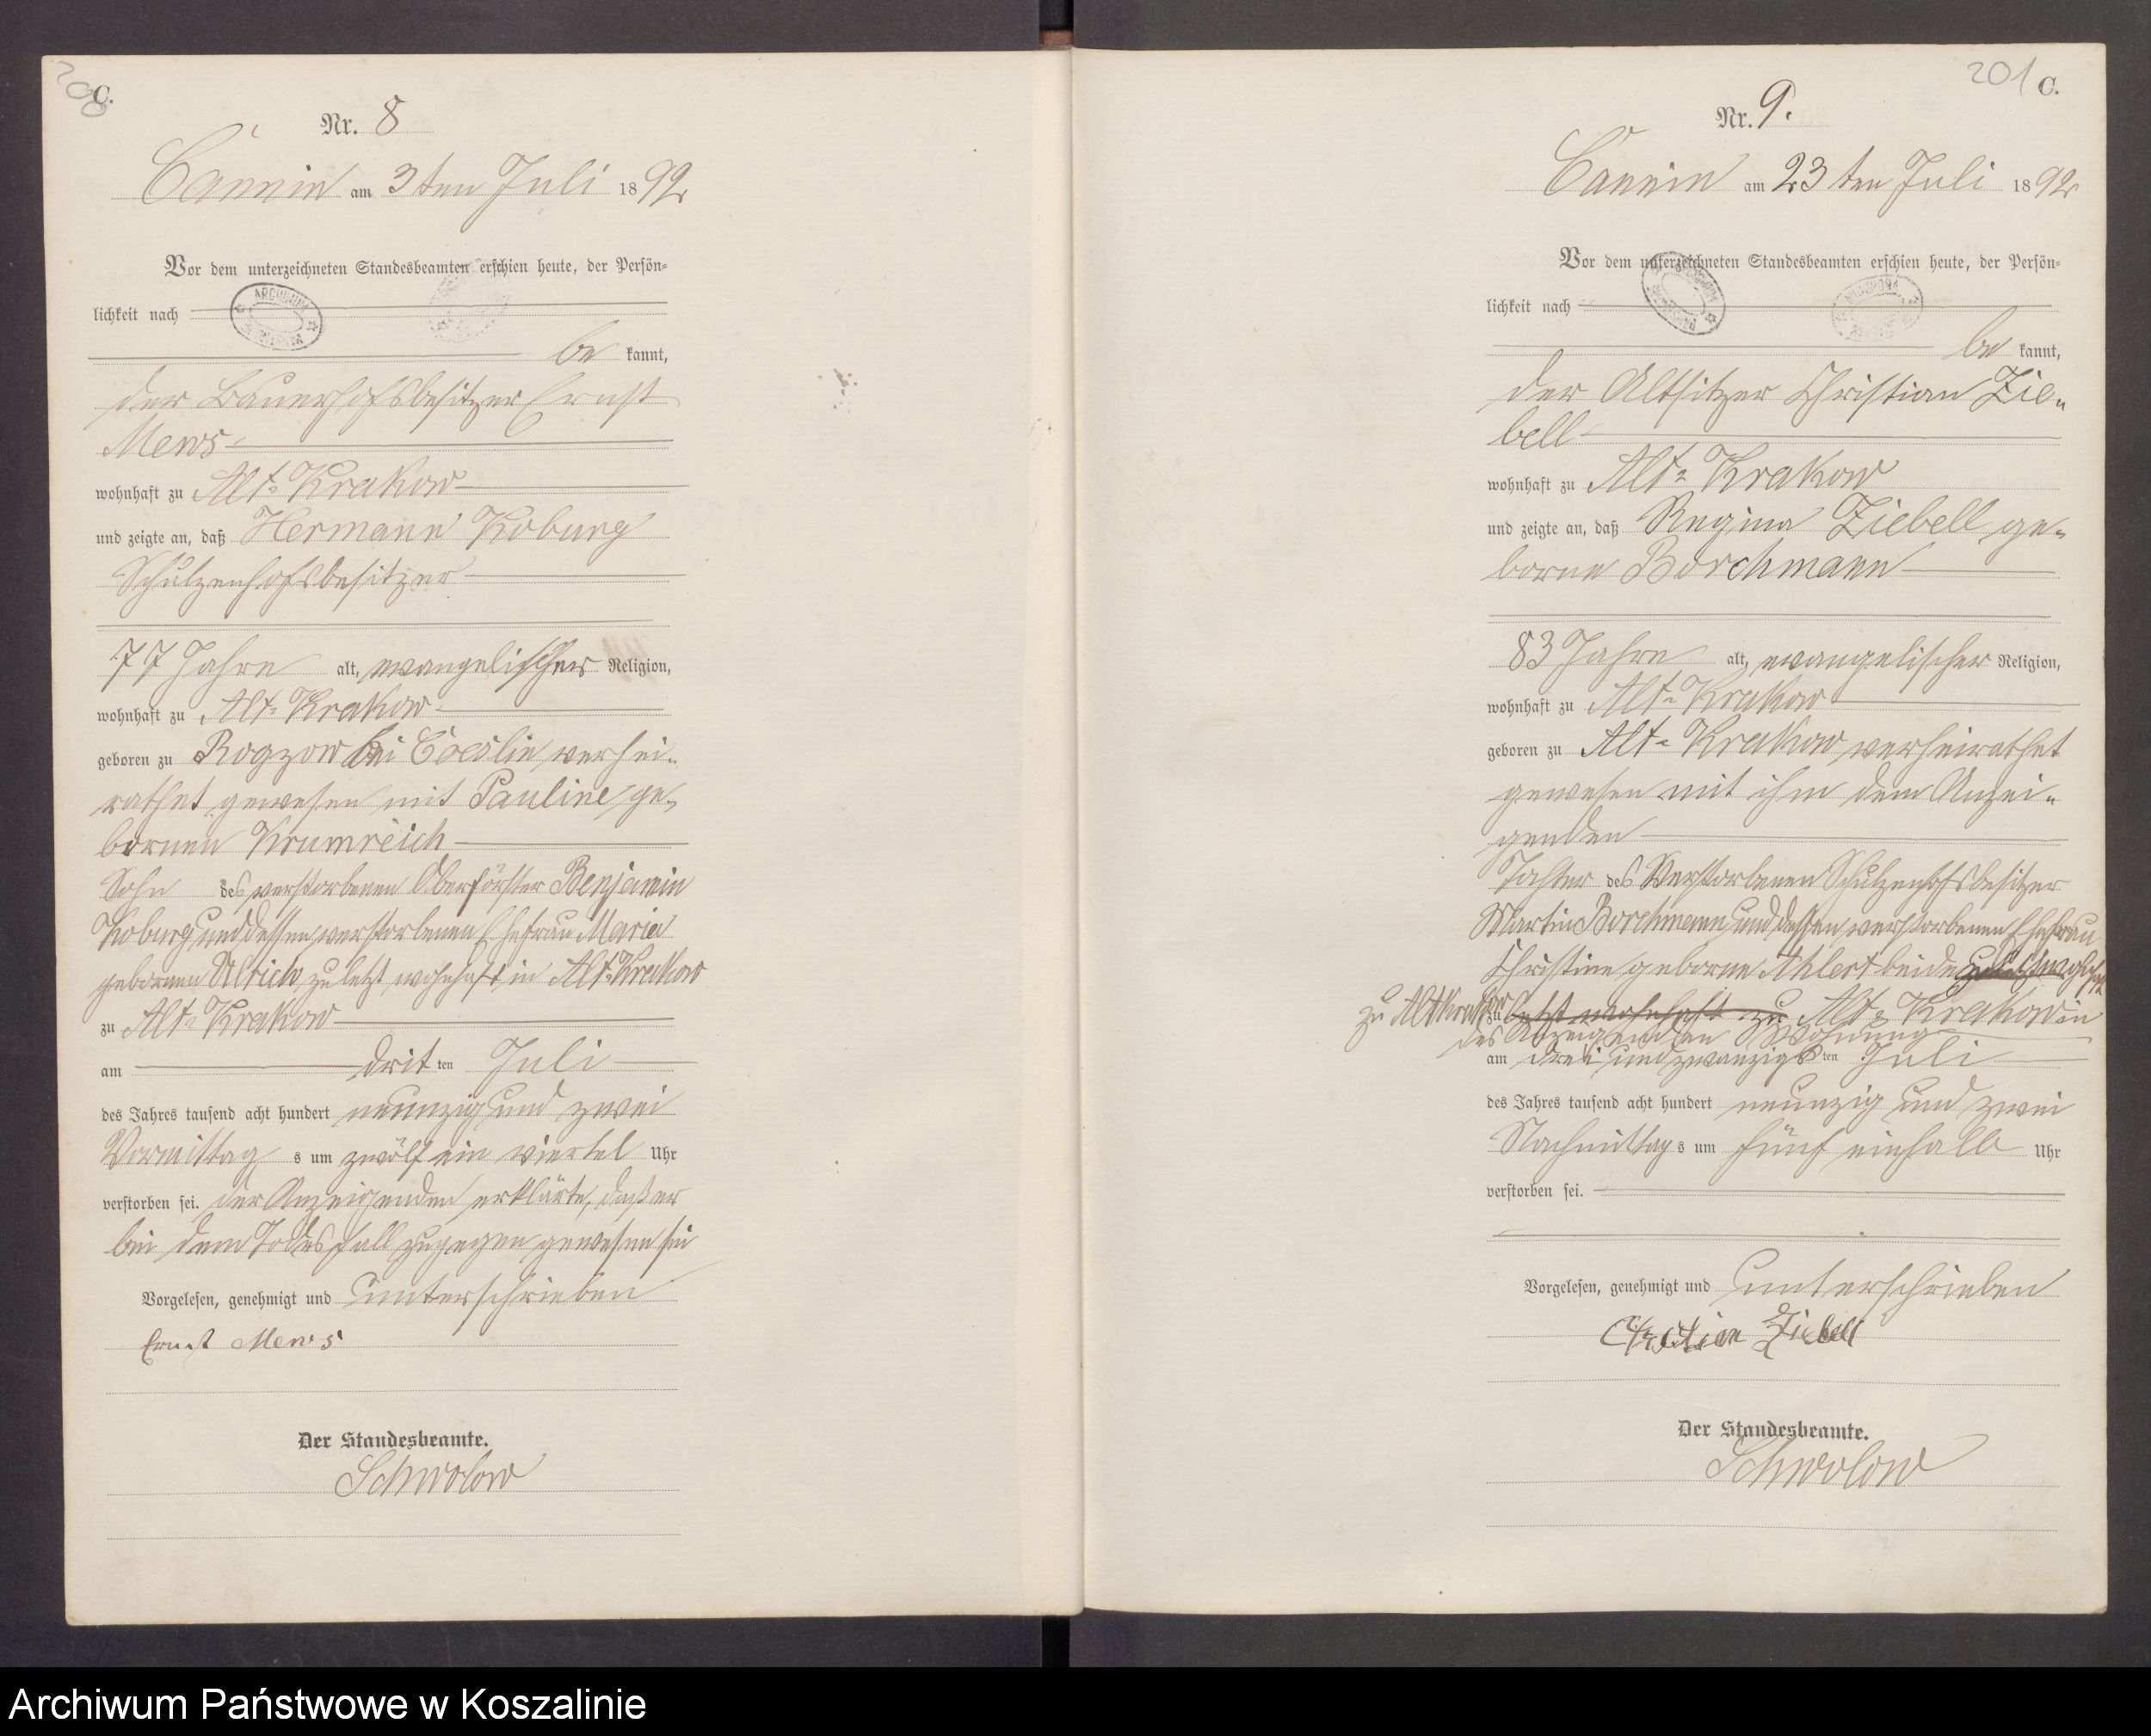 200
C.
Nr. 8
Cannin am 3ten Juli 1892
Vor dem unterzeichneten Standesbeamten erschien heute, der Persön-
lichkeit nach
be kannt,
der Bauerhofsbesitzer Ernst
Mews
wohnhaft zu Alt-Krakow
und zeigte an, daß Hermann Koburg
Schulzenhofsbesitzer
77 Jahre alt, evangelischer Religion,
wohnhaft zu Alt-Krakow
geboren zu Rogzow bei Coeslin verhei-
rathet gewesen mit Pauline ge-
bornen Krumreich
Sohn des verstorbenen Oberförster Benjamin
Koburg und dessen verstorbenen Ehefrau Maria
gebornen Ulrich zuletzt wohnhaft in Alt-Krakow
zu Alt-Krakow
am drit ten Juli
des Jahres tausend acht hundert neunzig und zwei
Vormittag s um zwölf ein viertel Uhr
verstorben sei. der Anzeigenden erklärte, daß er
bei dem Todesfall zugegen gewesen sei
Vorgelesen, genehmigt und unterschrieben
Ernst Mews
Der Standesbeamte.
Schwolow
201 C.
Nr. 9.
Cannin am 23ten Juli 1892
Vor dem unterzeichneten Standesbeamten erschien heute, der Persön-
lichkeit nach
be kannt,
der Altsitzer Christian Zie-
bell
wohnhaft zu Alt-Krakow
und zeigte an, daß Regina Ziebell ge-
borne Borchmann
83 Jahre alt, evangelischer Religion,
wohnhaft zu Alt-Krakow
geboren zu Alt-Krakow verheirathet
gewesen mit ihm dem Anzei-
genden
Tochter des Verstorbenen Schulzenhofsbesitzer
Martin Borchmann und dessen verstorbenen Ehefrau
Christine geborne Ahlert beide zuletzt wohnhaft
zu Alt Krakow
zu letzt wohnhaft zu Alt-Krakow in
des Anzeigenden Wohnung
am drei und zwanzigs ten Juli
des Jahres tausend acht hundert neunzig und zwei
Nachmittag s um fünf einhalb Uhr
verstorben sei.
Vorgelesen, genehmigt und unterschrieben
Christian Ziebell
Der Standesbeamte.
Schwolow
Archiwum Państwowe w Koszalinie